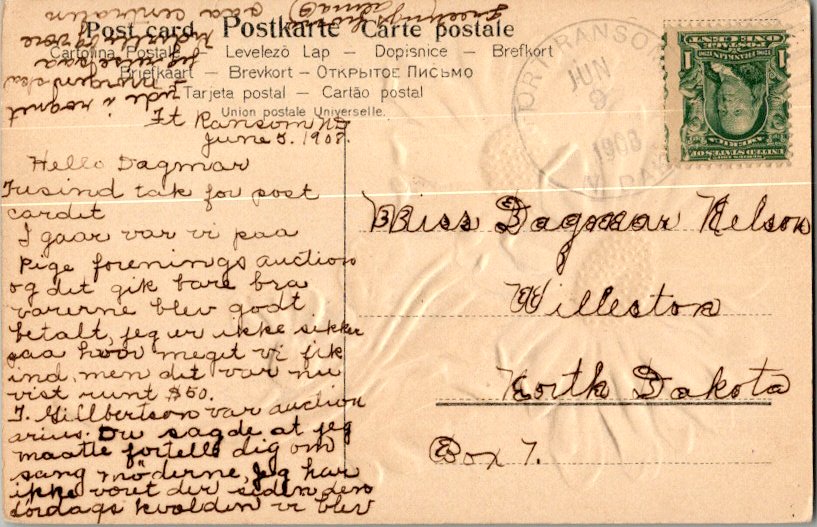 Post card Postkarte Carte postale
Cartolina Postale — Levelező Lap — Dopisnice — Brefkort
Briefkaart — Brevkort — Открытое Письмо
Tarjeta postal — Cartão postal
Union postale Universelle.
Ft Ransom ND
June 5. 1908.
Hello Dagmar
Tusind tak for post
cardit
I gaar var vi paa
Pige forenings auction
og dit gik bare bra
varerne blev godt
betalt, jeg er ikke sikker
paa hvor megit vi fik
ind, men dit var nu
vist runt $50.
T. Gillbertson var auction
arius. Du sagde at jeg
maatte fortelle dig om
sang möderne, Jeg har
ikke voret der siden den
lördags kvolden vi blev
ude i regnet
Morgen ska
vi
ada centralin
FORT RANSOM
JUN
9
1908
N DAK
ONE CENT
1 1
Miss Dagmar Nelson
Willeston
North Dakota
Box 7.